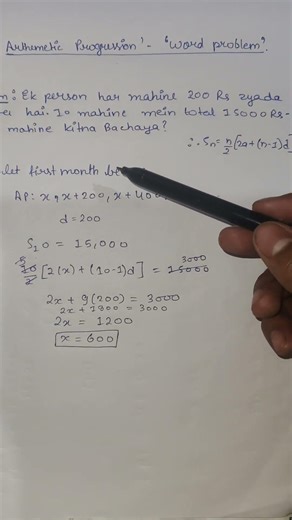 Arithmetic Progression' - 'Word problem'.
n: Ek person har mahine 200 Rs zyada
hai. 10 mahine mein total 15000 Rs-
mahine kitna Bachaya?
∴ Sn = n/2 [2a+(n-1)d]
let first month be
AP: x, x+200, x+400,
d = 200
S10 = 15,000
5 3000
10/2 [2(x) + (10-1)d] = 15000
2x + 9(200) = 3000
2x + 1800 = 3000
2x = 1200
x = 600